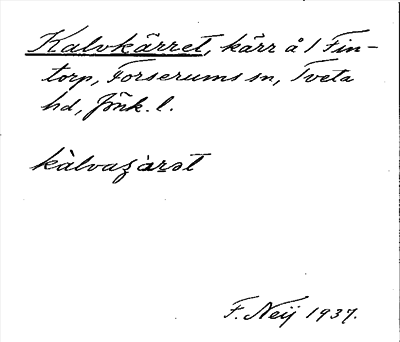 Kalvkärret, kärr å 1 Fin-
torp, Forserums sn, Tveta
hd, Jönk. l.
kàlvaʒàrət
F. Neij 1937.